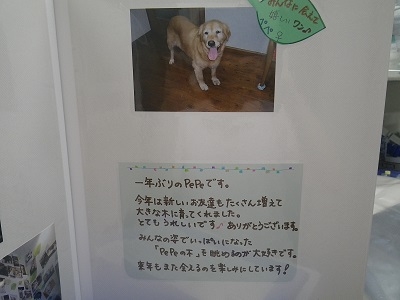 みんなに会えて
嬉しいワン♪
ペペ
一年ぶりのPePeです。
今年は新しいお友達もたくさん増えて
大きな木に育ってくれました。
とてもうれしいです♪ ありがとうございます。
みんなの姿でいっぱいになった
「PePeの木」を眺めるのが大好きです。
来年もまた会えるのを楽しみにしています!